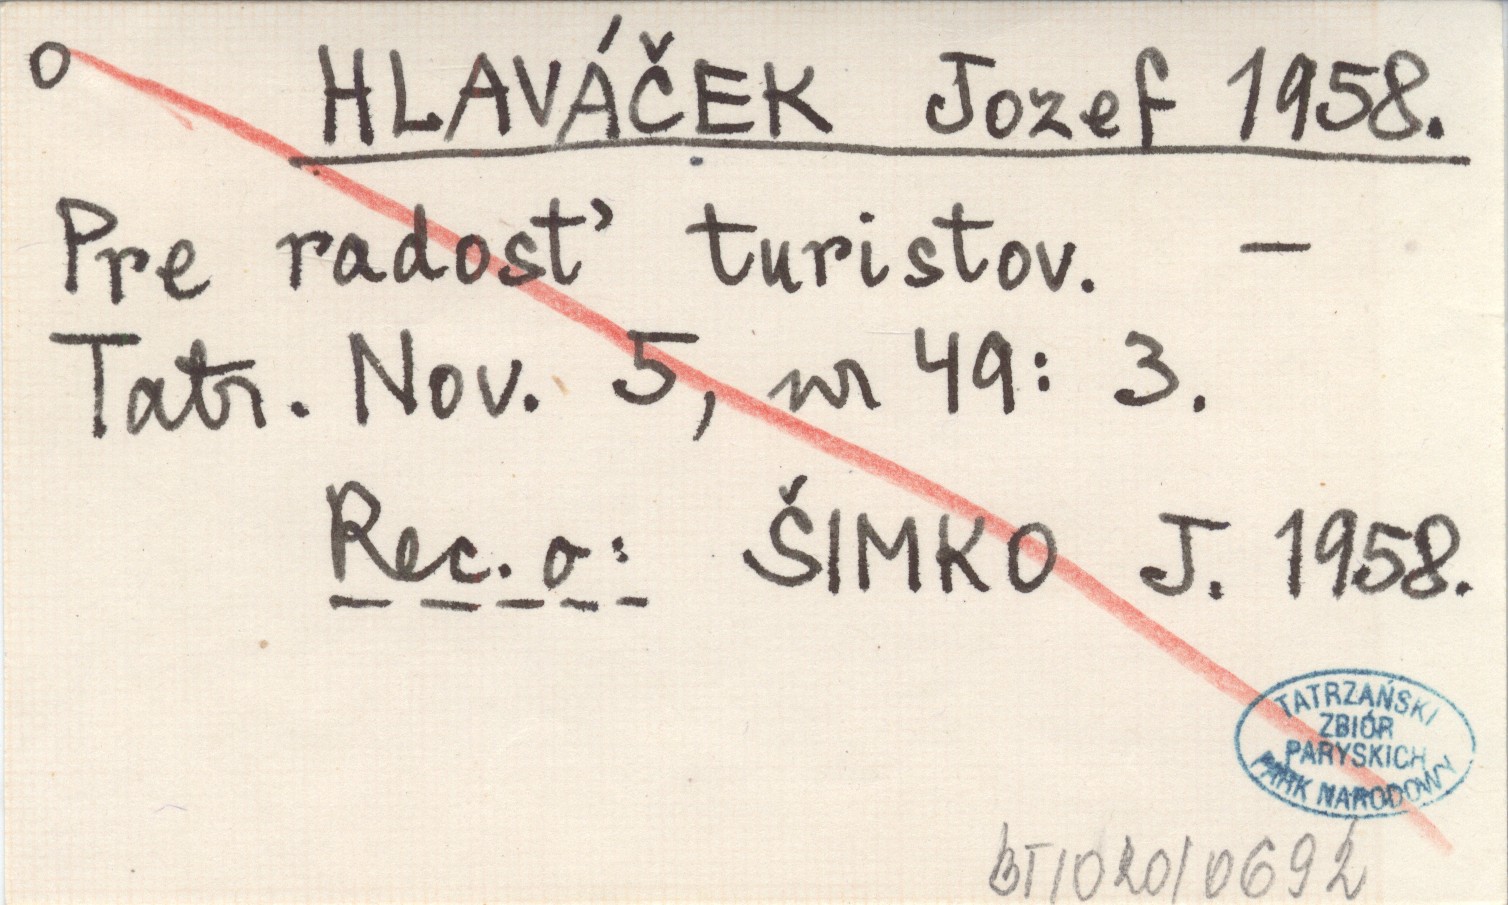 o HLAVÁČEK Jozef 1958.
Pre radosť turistov. —
Tatr. Nov. 5, nr 49: 3.
Rec. o: ŠIMKO J. 1958.
TATRZAŃSKI
ZBIÓR
PARYSKICH
PARK NARODOWY
BT/020/0692